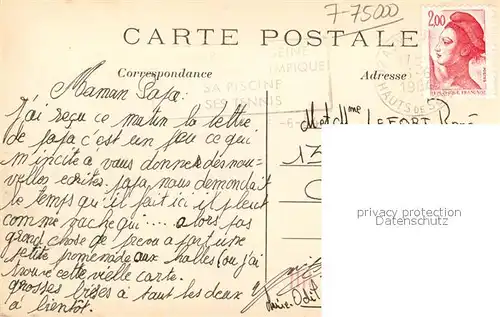 7-75000
CARTE POSTALE
2,00
Correspondance
Adresse
SA PISCINE
SES TENNIS
HAUTS DE S
Maman Papa:
J'ai reçu ce matin la lettre
de papa c'est un peu ce qui
m'incite a vous donner des nou-
velles ecrites. papa nous demandait
le temps qu'il fait ici il pleut
comme vache qui .... alors pas
grand chose de prevu a part une
petite promenade aux halles (ou j'ai
trouvé cette vielle carte.
grosses bises à tout les deux
à bientôt.
M et Mme LEFORT
17
privacy protection
Datenschutz